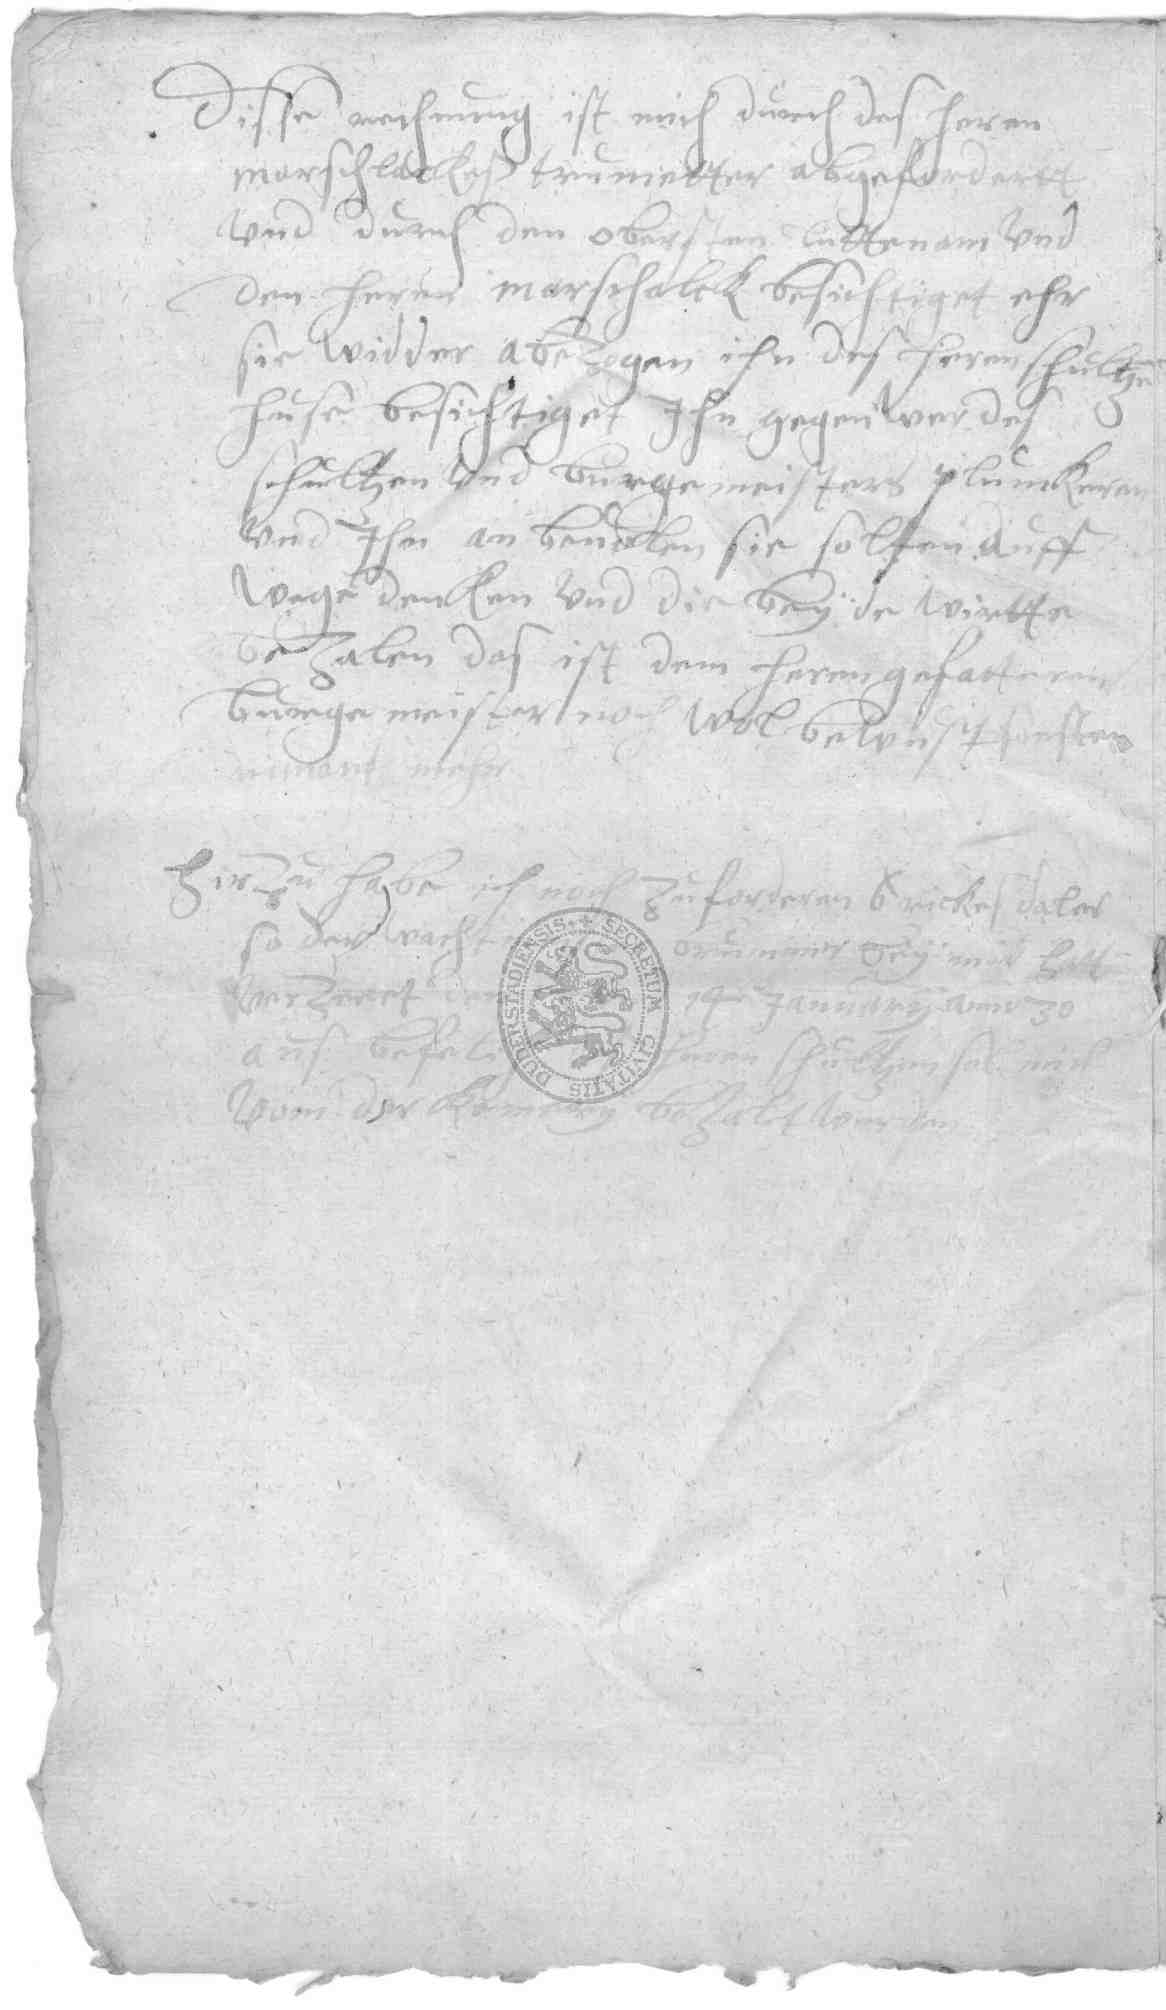 Disse rechnung ist mich durch des heren
marschlalckes trumetter abgefordertt
Vnd durch den obersten luttenam Vnd
den heren marschalck besichtiget ehr
sie widder abezogen ihn des heren schultzen
huse besichtiget Ihn gegenwer des
schultzen Vnd burgemeisters plumkeren
Vnd Ihn anbeuolen sie solten auff
wege dencken Vnd die beyde wirtte
bezalen das ist dem heren gefatteren
burgemeister noch wol bewust
mehr
Hirzu habe ich noch zuforderen 6 rickesdaler
so der wacht bey mir hatt
Verzeret den 14 January anno 30
aus befel heren schultzen sol mir
Vom der kemery bezalet werden
SECRETUM CIVITATIS DUDERSTADIENSIS